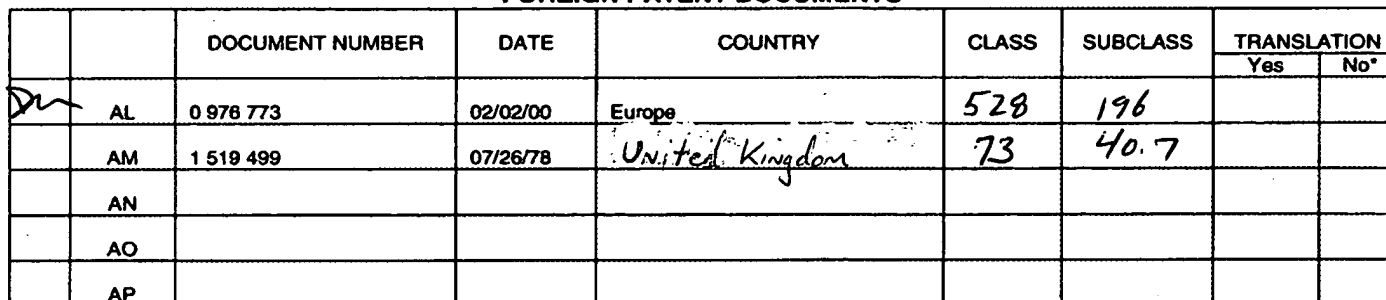 DOCUMENT NUMBER DATE COUNTRY CLASS SUBCLASS TRANSLATION
Yes No*
AL 0 976 773 02/02/00 Europe 528 196
AM 1 519 499 07/26/78 United Kingdom 73 40.7
AN
AO
AP